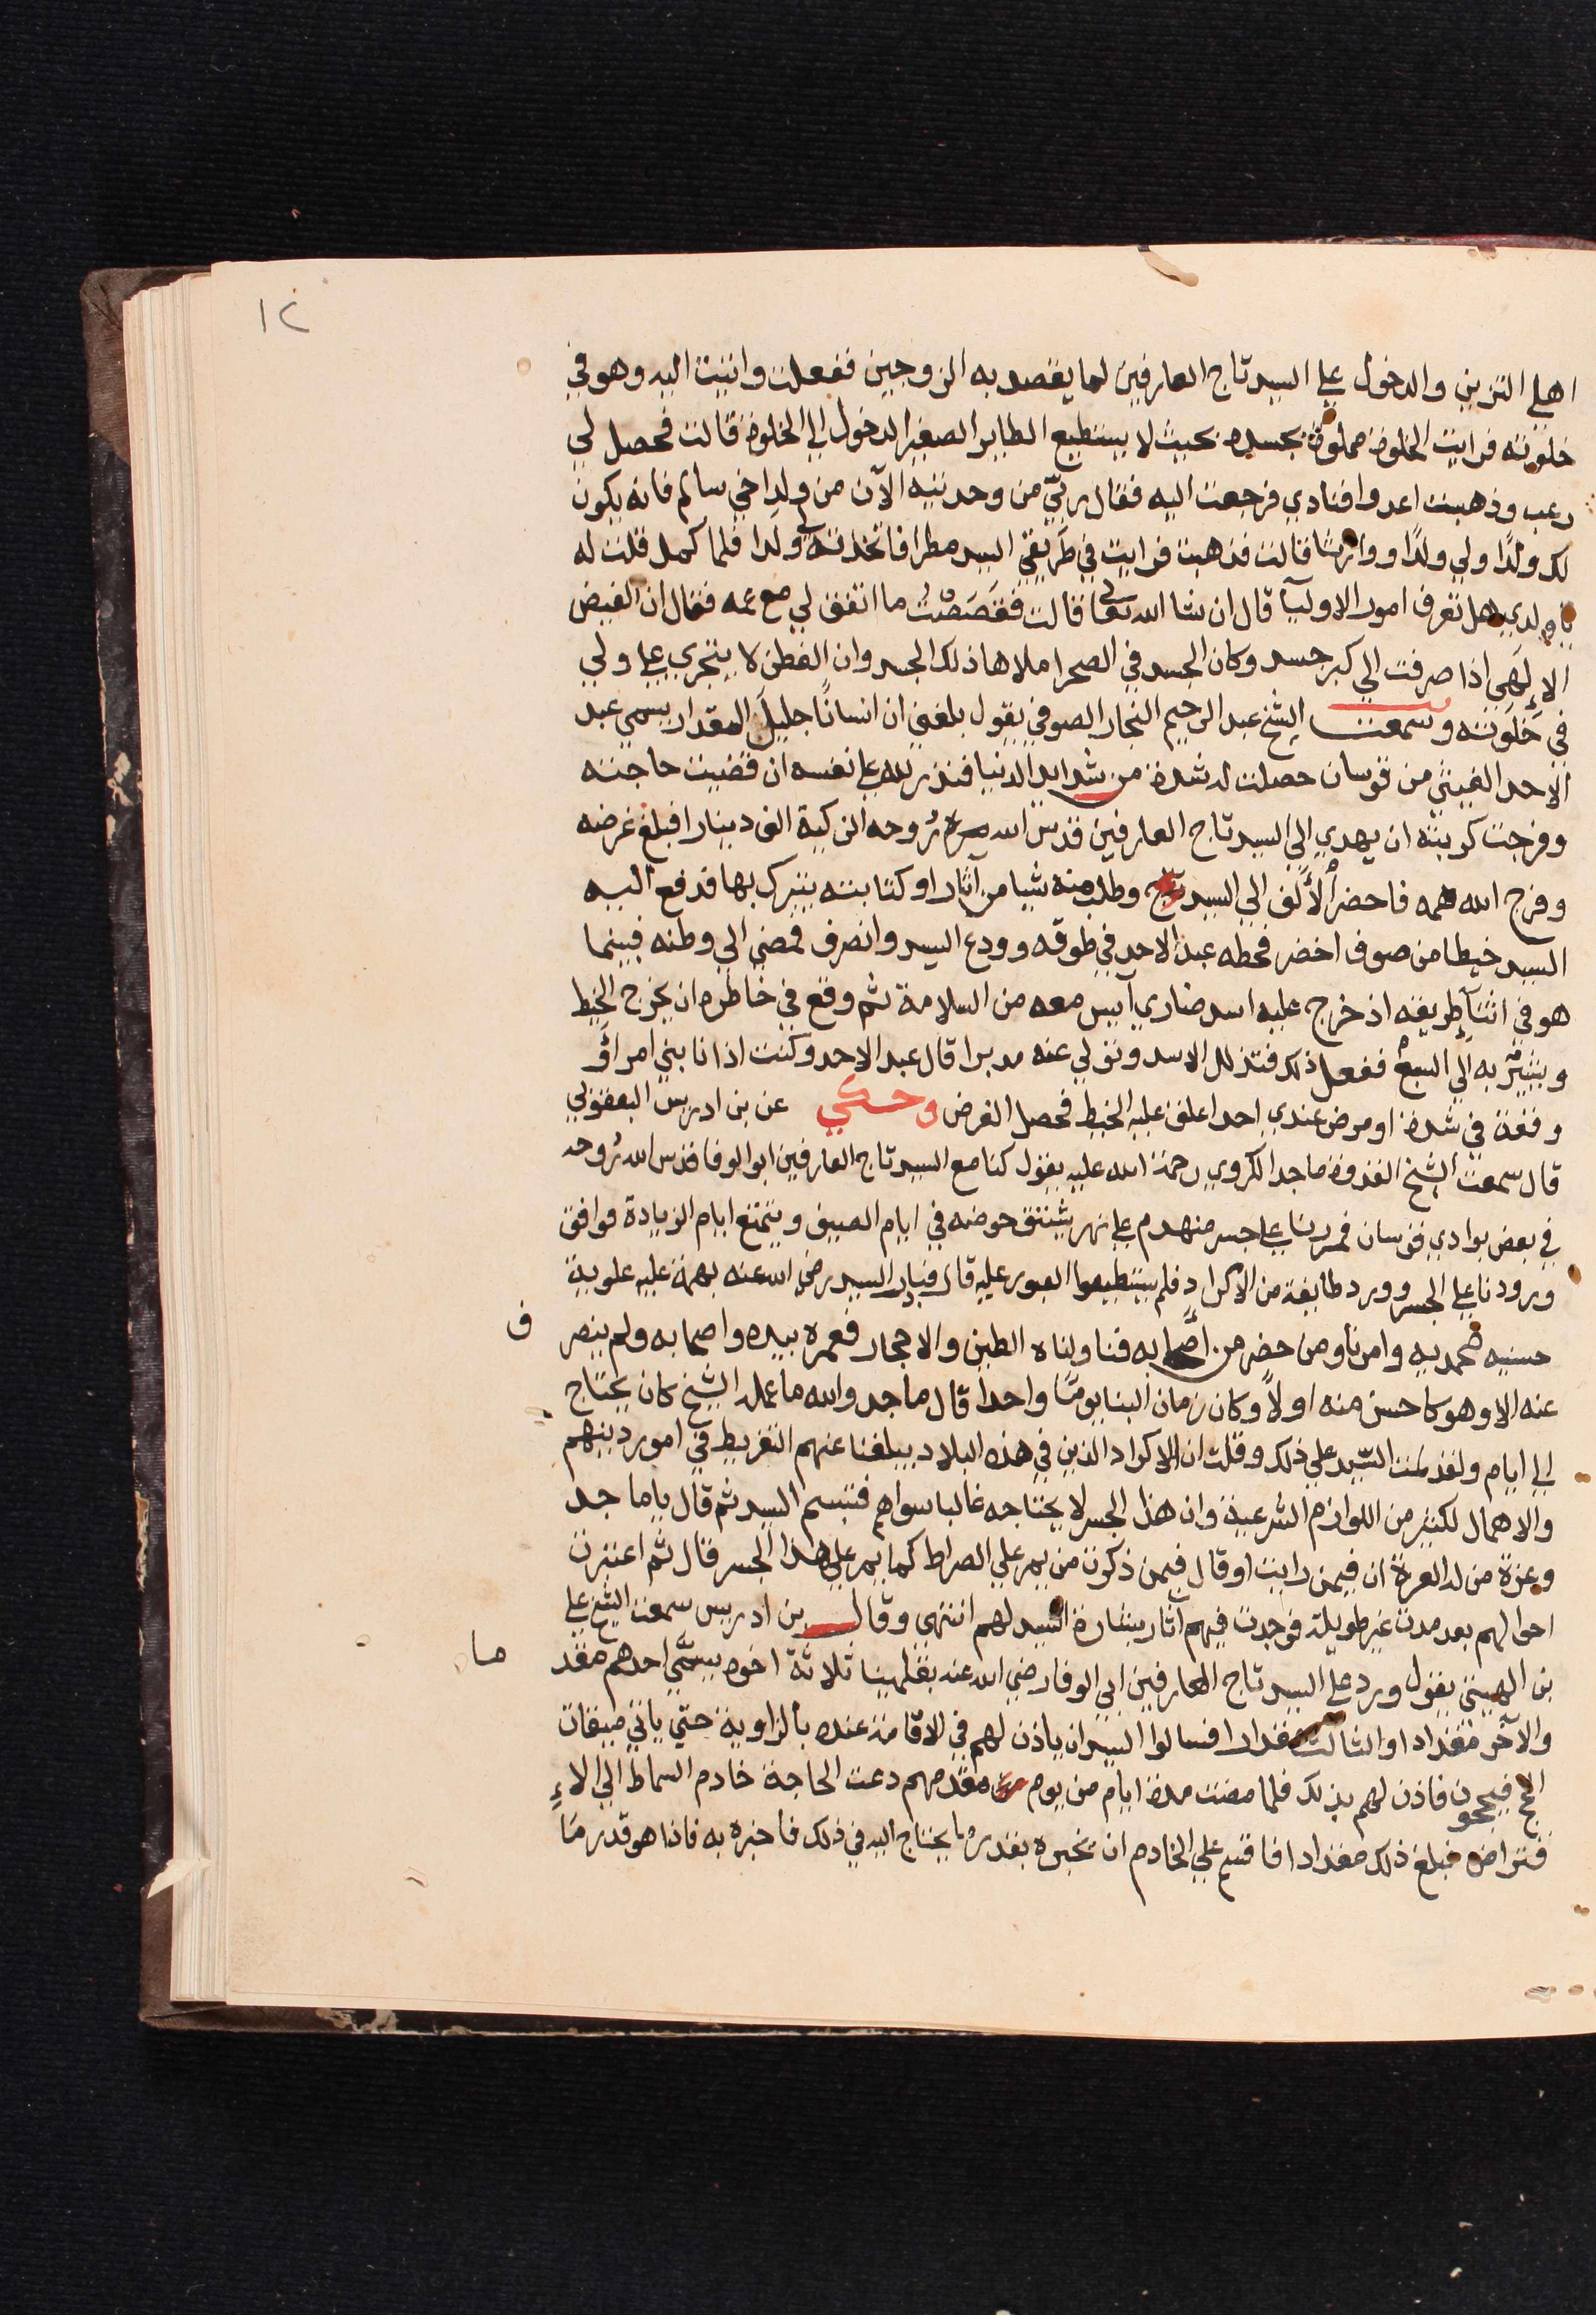 ١٢
اهلي التزين والدخول علي السيد تاج العارفين لما يقصد به الزوجين ففعلت واتيت اليه وهو في
خلوته فرايت الخلوة مملوة بجسده بحيث لا يستطيع الطاير الصغير الدخول الي الخلوة قالت فحصل لي
رعب وذهبت اعدوا فنادي فرجعت اليه فقال من وحدتيه الآن من ولد اخي سالم فانه يكون
لك ولدًا ولي ولدًا ووارثا قالت فذهبت فرايت في طريقي السيد مطرا فاتخذته لي ولدا فلما كمل قلت له
يا ولدي هل تعرف امور الاوليآ قال ان شا الله تعالى قالت فقَصَصْتُ ما اتفق لي مع عمه فقال ان الفيض
الإلَهي اذا صرفت الي كبر جسد وكان الجسد في الصحرا ملاها ذلك الجسد وان الفطن لا يتجري علي ولي
في خَلَوته وسمعت الشيخ عبد الرحيم النجار الصوفي يقول بلغني ان انسانًا جليلَ المقدار يسمي عبد
الاحد الغيثي من قوسان حصلت له شدة من شدايد الدنيا فنذر لله علي نفسه ان قضيت حاجته
وفرجت كربته ان يهدي الي السيد تاج العارفين قدس الله رُوحه الزكية الف دينارا فبلغ غرضه
وفرج الله همه فاحضر الألف الي السيد وطلب منه شيا من آثار او كتابته يتبرك بها فدفع اليه
السيد خيطا من صوف اخضر فحطه عبد الاحد في طوقه وودع السيد وانصرف فمضي الي وطنه فبينما
هو في اثنآ طريقه اذ خرج عليه اسد ضاري آيس معه من السلامة ثم وقع في خاطره ان يخرج الخيط
ويشير به الي السبع ففعل ذلك فتذلل الاسد وتولي عنه مدبرا قال عبد الاحد وكنت اذا نابني امر او
وقعة في شدة او مرض عندي احدا علق عليه الخيط فحصل الغرض وحكي عن بن ادريس اليعقوبي
قال سمعت الشيخ القدوة ماجد الكروي رحمة الله عليه يقول كنا مع السيد تاج العارفين ابو الوفا قدس الله رُوحه
في بعض بوادي قوسان فمررنا علي جسر منهدم علي نهر يشتق حوضه في ايام الصيف ويتمتع ايام الزيادة فوافق
ورودنا علي الجسر وورد طايفة من الاكراد فلم يستطيعوا العبور عليه قال فبادر السيد رضي الله عنه بهمة عليه علوية
حسنيه محمديه وامرنا ومن حضر من اصحابه فناولناه الطين والاحجار فعمره بيده واصحابه ولم ينصر
ف
عنه الا وهو كاحسن منه اولاً وكان زمان البنا يومًا واحدا قال ماجد والله ما عمله الشيخ كان يحتاج
الي ايام ولقد لمت السّيد علي ذلك وقلت ان الاكراد الذين في هذه البلاد يبلغنا عنهم التفريط في امور دينهم
والاهمال لكثير من اللوازم الشرعية وان هذا الجسر لا يحتاجه غالبا سواهم فتبسم السيد ثم قال يا ماجد
وعزة من له العزة ان فيمن رايت او قال فيمن ذكرت من يمر علي الصراط كما يمر علي هذا الجسر قال ثم اعتبرت
احوالهم بعد مدة غير طويلة فوجدت فيهم آثار بشارة السيد لهم انتهي وقال بن ادريس سمعت الشيخ علي
بن الهيتي يقول ورد علي السيد تاج العارفين ابي الوفا رضي الله عنه بقلمينا ثلاثة اخوه يسمَّي احدهم مقد
ما
والآخر مقدادا والثالث مقدارا فسالوا السيد ان ياذن لهم في الاقامة عنده بالزاوية حتي ياتي ميقات
الحج فيحجون فاذن لهم بذلك فلما مضت مدة ايام من يوم مقدمهم دعت الحاجة خادم السماط الي الاءِ
قتراض فبلغ ذلك مقداد فاقسم علي الخادم ان يخبره بقدر ما يحتاج اليه في ذلك فاخبره به فاذا هو قدر مَا